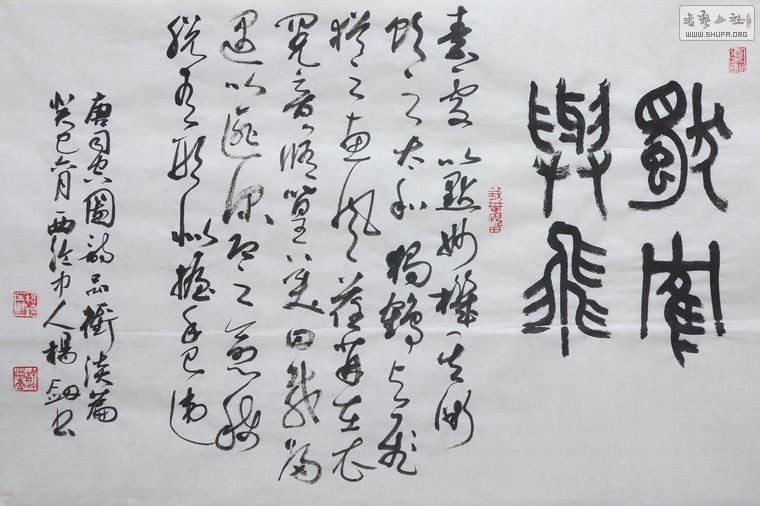 獨隺
與飛
素處以默妙機其微
飲之太和獨鶴與飛
猶之惠風荏苒在衣
閱音修篁美曰載歸
遇以匪深即之愈稀
脱有形似握手已違
唐司空圖詩品衝淡篇
癸巳六月西泠中人楊劍书
书艺公社
WWW.SHUFA.ORG